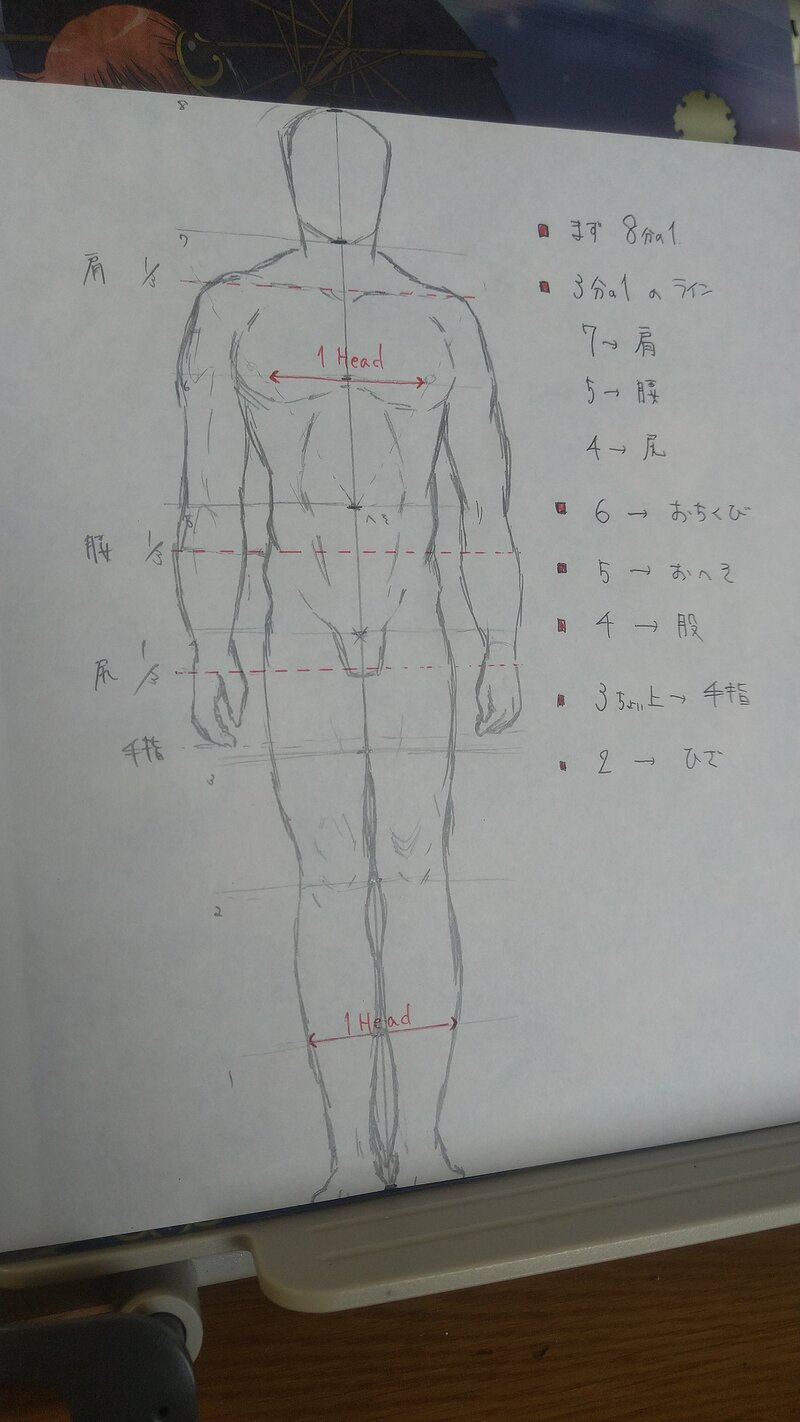 8
7
肩 1/3
1 Head
6
5
へそ
腰 1/3
尻 1/3
手指
3
2
1 Head
1
まず 8分の1
3分の1 の ライン
7→ 肩
5→ 腰
4→ 尻
6 → おちくび
5 → おへそ
4 → 股
3ちょい上→ 手指
2 → ひざ